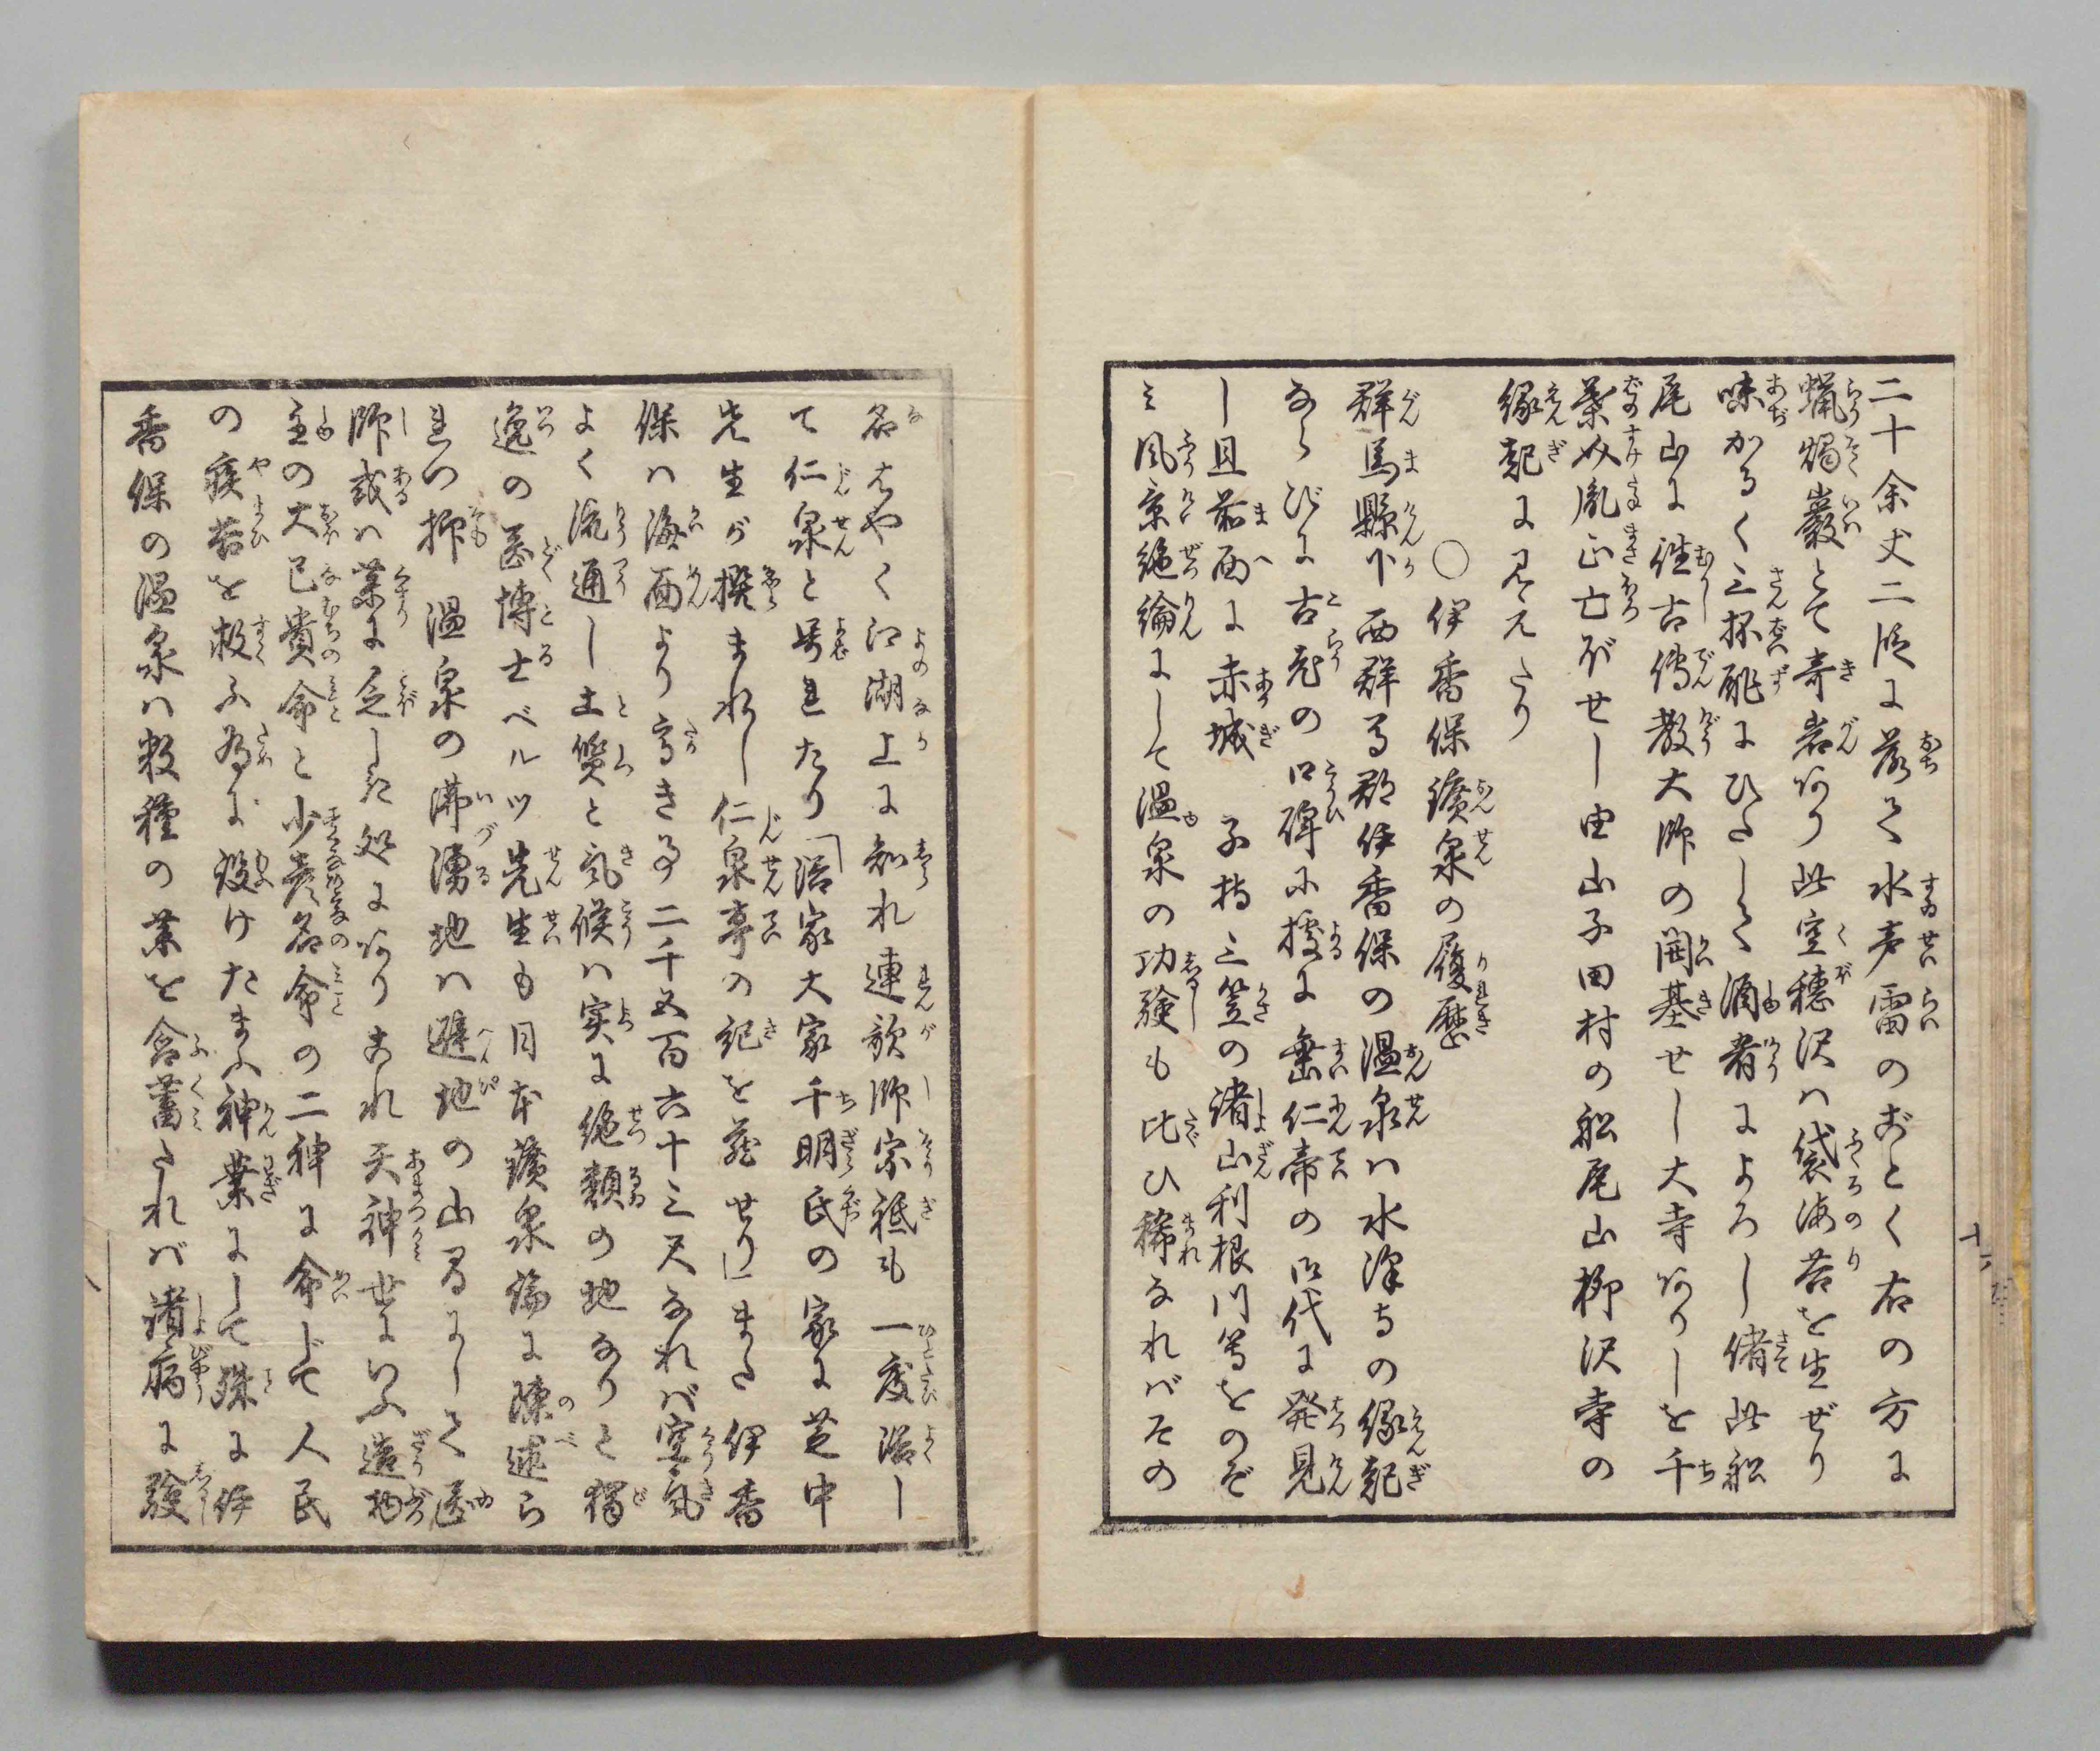 二十余丈二段に落て水声雷のおとく右の方に
蝋燭巌とて奇岩あり此空穂沢ハ袋海苔を生ぜり
味かろく三杯酢にひたして酒肴によろし偖此舩
尾山に往古傳教大師の開基せし大寺ありしを千
葉介胤正亡ぼせし由山子田村の舩尾山柳沢寺の
縁起に見えたり
○伊香保鑛泉の履歴
群馬縣下西群馬郡伊香保の温泉ハ水澤寺の縁起
ならびに古老の口碑に據に垂仁帝の御代に発見
し且前面に赤城子持三笠の諸山利根川等をのぞ
ミ風景絶綸にして温泉の功験も比ひ稀なれバその
名はやく江湖上に知れ連歌師宗祇も一度浴し
て仁泉と号れたり「浴家大家千明氏の家に芝中
先生が撰まれし仁泉亭の記を蔵せり」また伊香
保ハ海面より高き事二千五百六十三尺なれバ空氣
よく流通し土質と気候ハ実に絶類の地なりと獨
逸の醫博士ベルツ先生も日本鑛泉論に陳述ら
れつ抑温泉の沸湧地ハ避地の山間にして醫
師或ハ薬に乏しき処にありこれ天神世にいふ造物
主の大已貴命と少彦名命の二神に命じて人民
の疾苦を救ふ為に設けたまふ神業にして殊に伊
香保の温泉ハ数種の薬を含蓄たれバ諸病に驗
十六